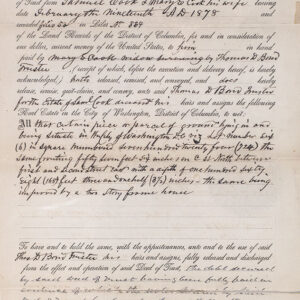 of Trust from Samuel Cook & Mary E Cook his wife bearing
date February the Nineteenth A.D. 1878 and
recorded in Liber No.
of the Land Records of the District of Columbia, for and in consideration of
one dollar, current money of the United States, to in hand
paid by Mary E Cook widow
(receipt of which, before the execution and delivery hereof, is hereby
acknowledged,) hath released and conveyed, and does hereby
release, quit-claim, and convey, unto said Thomas D Bond Trustee
for the Estate of Cook deceased his heirs and assigns the following
Real Estate in the City of Washington, District of Columbia, to wit:
All that certain piece or parcel of ground lying in and
being situate in the City of Washington D.C. viz Lot number Six
(6) in square numbered seven hundred and twenty four (724) the
same fronting fifty seven feet six inches on C st North between
first and second street East with a depth of one hundred sixty
Eight (168) feet three and one half (3½) inches - the same being
improved by a two story frame house
To have and to hold the same, with the appurtenances, unto and to the use of said
Thos D Bond Trustee his heirs and assigns, fully released and discharged
from the effect and operation of said Deed of Trust, the debt secured
by said deed of trust having been fully paid